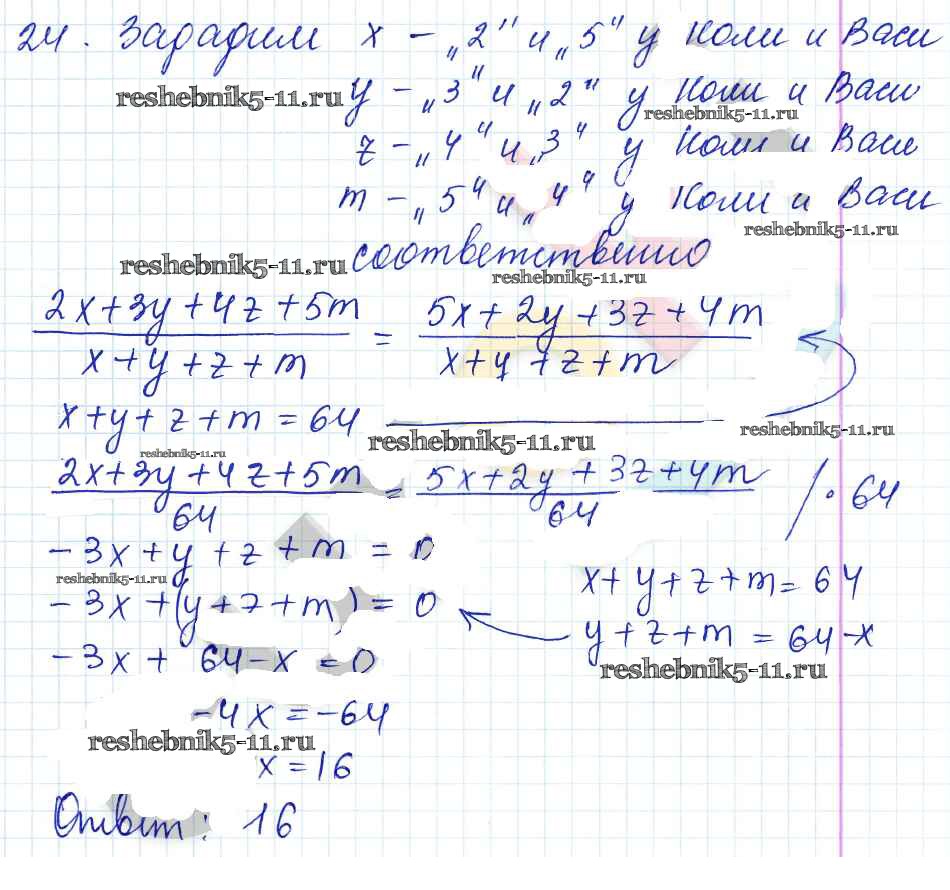 24. Зададим x – „2" и „5" у Коли и Васи
reshebnik5-11.ru y – „3" и „2" у Коли и Васи
reshebnik5-11.ru
z – „4" и „3" у Коли и Васи
m – „5" и „4" у Коли и Васи
reshebnik5-11.ru
reshebnik5-11.ru соответственно
reshebnik5-11.ru
2x+3y+4z+5m / x+y+z+m = 5x+2y+3z+4m / x+y+z+m
x+y+z+m=64
reshebnik5-11.ru reshebnik5-11.ru
reshebnik5-11.ru
2x+3y+4z+5m / 64 = 5x+2y+3z+4m / 64 / · 64
-3x+y+z+m=0
reshebnik5-11.ru
x+y+z+m=64
-3x+(y+z+m)=0
y+z+m=64-x
-3x+64-x=0
reshebnik5-11.ru
-4x=-64
reshebnik5-11.ru
x=16
Ответ: 16